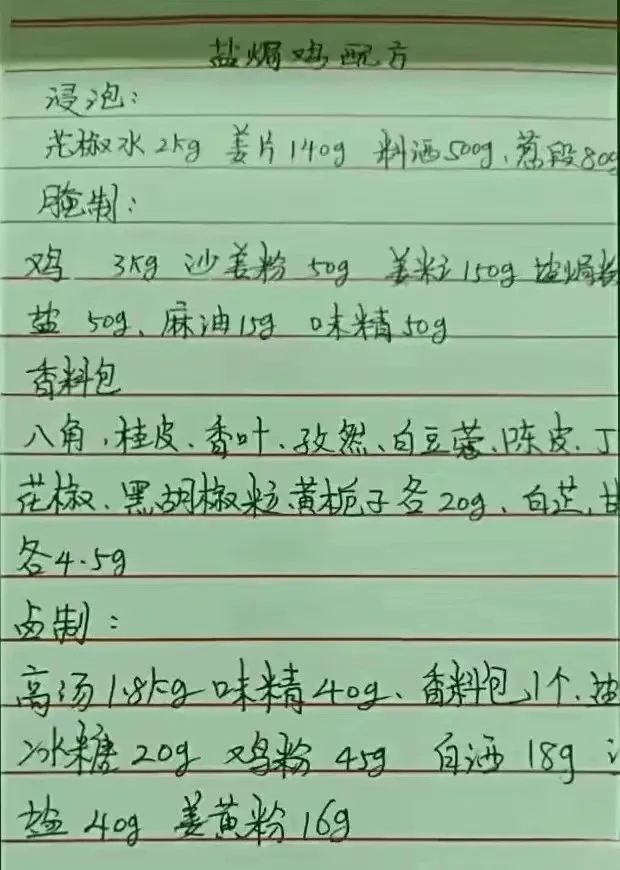 盐焗鸡配方
浸泡:
花椒水2kg 姜片140g 料酒500g、葱段80g
腌制:
鸡 3kg 沙姜粉 50g 姜粒150g 盐焗粉
盐 50g、麻油15g 味精50g
香料包
八角、桂皮、香叶、孜然、白豆蔻、陈皮、丁
花椒、黑胡椒粒、黄栀子各20g、白芷、甘
各4.5g
卤制:
高汤1.8kg 味精40g、香料包1个、盐
冰糖20g 鸡粉 45g 白酒18g
盐 40g 姜黄粉16g